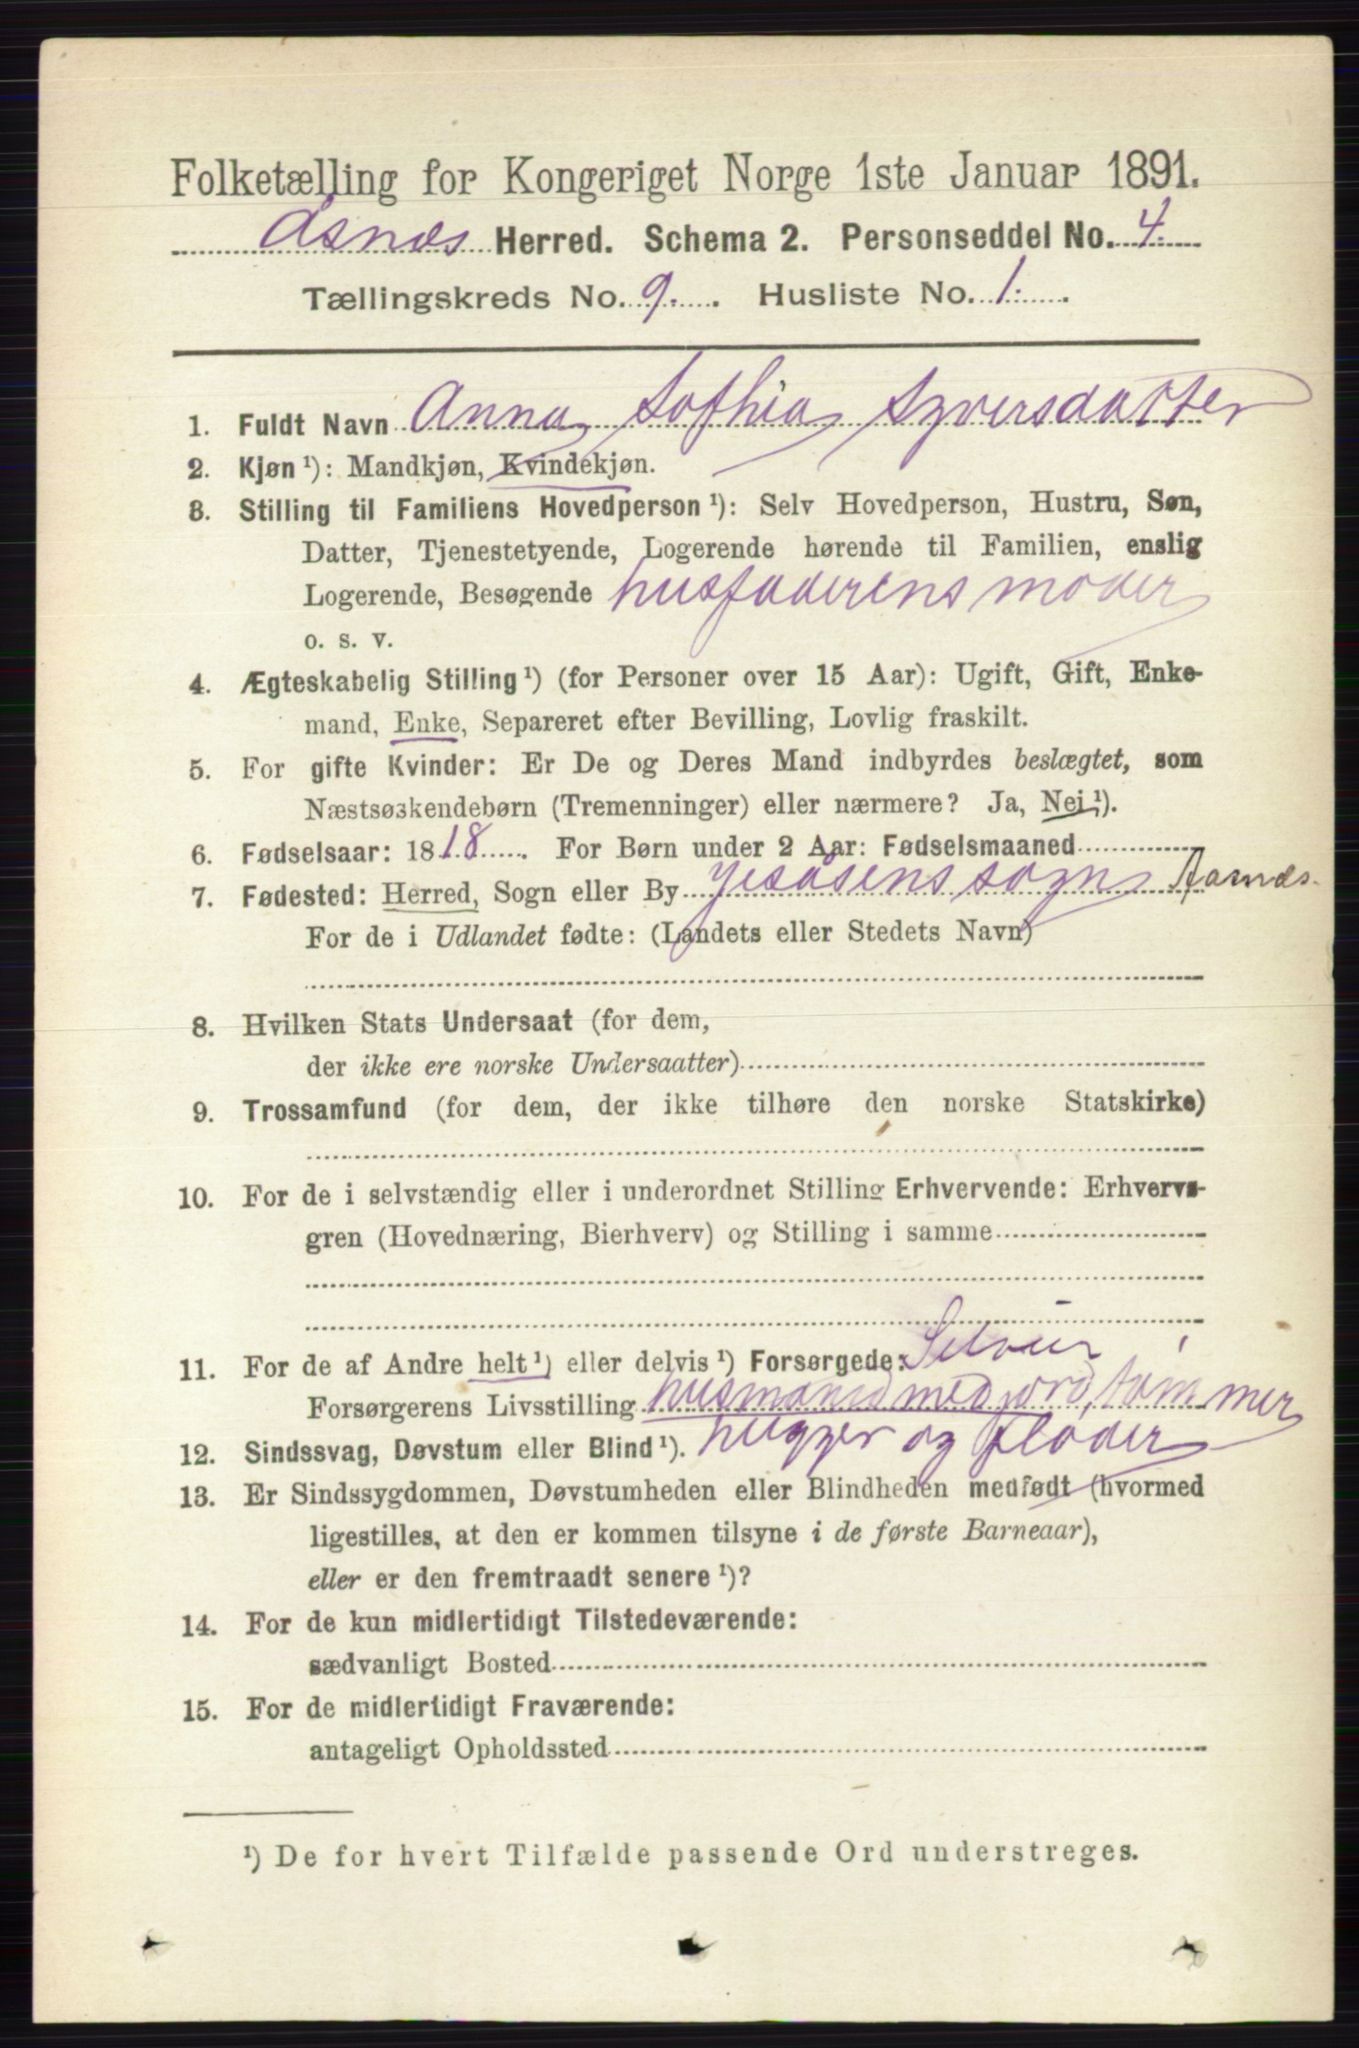 Folketælling for Kongeriget Norge 1ste Januar 1891.
Åsnæs Herred. Schema 2. Personseddel No. 4.
Tællingskreds No. 9. Husliste No. 1.
1. Fuldt Navn Anna Sofhia Syversdatter
2. Kjøn ¹): Mandkjøn, Kvindekjøn.
3. Stilling til Familiens Hovedperson ¹): Selv Hovedperson, Hustru, Søn,
Datter, Tjenestetyende, Logerende hørende til Familien, enslig
Logerende, Besøgende husfaderens moder
o. s. v.
4. Ægteskabelig Stilling ¹) (for Personer over 15 Aar): Ugift, Gift, Enke-
mand, Enke, Separeret efter Bevilling, Lovlig fraskilt.
5. For gifte Kvinder: Er De og Deres Mand indbyrdes beslægtet, som
Næstsøskendebørn (Tremenninger) eller nærmere? Ja, Nei ¹).
6. Fødselsaar: 1818. For Børn under 2 Aar: Fødselsmaaned
7. Fødested: Herred, Sogn eller By Jesåsens sogn Aasnæs.
For de i Udlandet fødte: (Landets eller Stedets Navn)
8. Hvilken Stats Undersaat (for dem,
der ikke ere norske Undersaatter)
9. Trossamfund (for dem, der ikke tilhøre den norske Statskirke)
10. For de i selvstændig eller i underordnet Stilling Erhvervende: Erhvervs-
gren (Hovednæring, Bierhverv) og Stilling i samme
11. For de af Andre helt ¹) eller delvis ¹) Forsørgede:
Forsørgerens Livsstilling husmand med jord, tømmer
hugger og fløder
12. Sindssvag, Døvstum eller Blind ¹).
13. Er Sindssygdommen, Døvstumheden eller Blindheden medfødt (hvormed
ligestilles, at den er kommen tilsyne i de første Barneaar),
eller er den fremtraadt senere ¹)?
14. For de kun midlertidigt Tilstedeværende:
sædvanligt Bosted
15. For de midlertidigt Fraværende:
antageligt Opholdssted
¹) De for hvert Tilfælde passende Ord understreges.